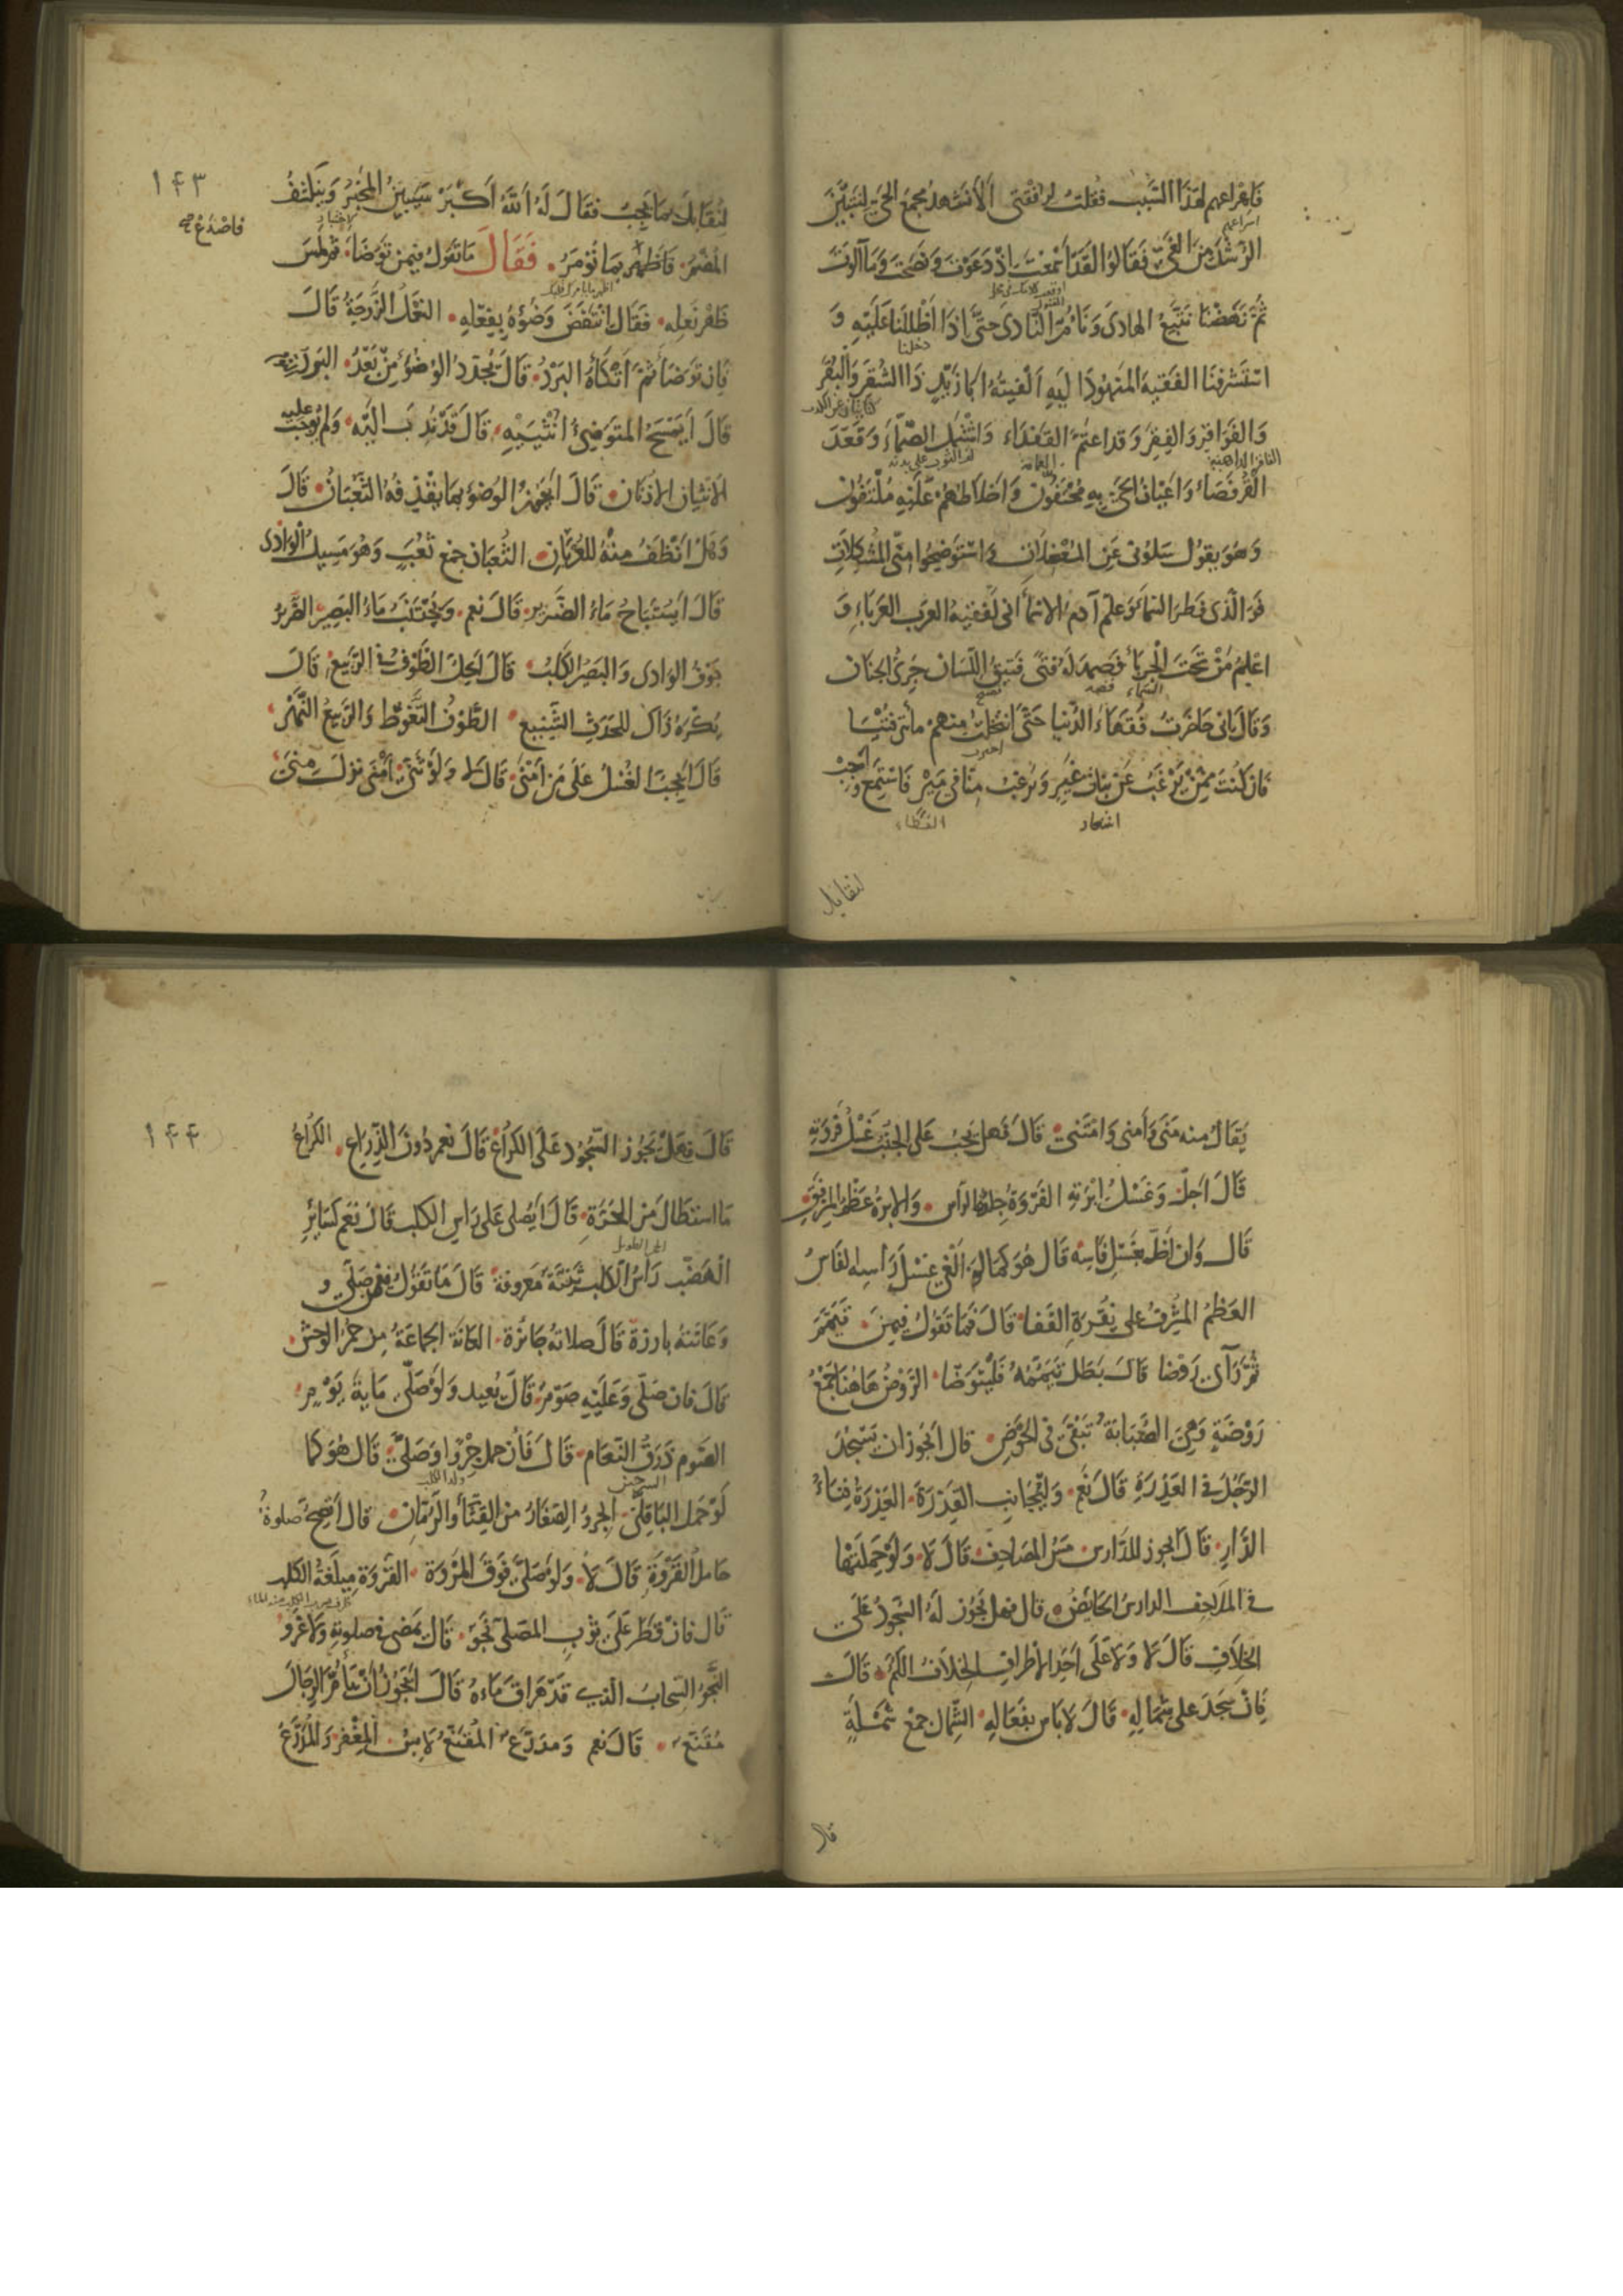 فَاهْراعهم لهَذَا السَّبَب فقُلت لرفقتى اَلَا نَشهدُ مجمعَ الحَىّ لنتبيَّنَ
الرُّشْدَ مِنَ الغَىّ فَقَالوا لقَد اَسْمَعْتَ اِذْ دَعَوْتَ وَنصَحْتَ وَمَا اَلَوْتَ
ثُمَّ نَهَضْنَا نَتَّبِعُ الهادىَ وَنَاُمُّ النَّادىَ حتَّى اِذَا اَظْلَلْنَا عَلَيْهِ وَ
اسْتَشْرفْنَا الفَقِيهَ المَنهُودَ اِلَيهِ اَلْفَيتُهُ اَبَا زَيْدٍ ذَا الشُقَرِ وَالبُقَرِ
وَالفَوَاقِرِ وَالفِقَرِ وَقد اعتَمَّ القَفْدَاءَ وَاشْتَمَلَ الصَّمَّاءَ وَقَعَدَ
القُرفُصَاءَ وَاَعْيَانُ الحَىّ بِهِ مُحْتَفّونَ وَاَخْلاَطُهُمْ عَلَيْهِ مُلْتَفُّونَ
وَهُوَ يَقُول سَلُونى عَنِ المُعْضِلاَتِ وَاسْتَوْضِحُوا مِنّى المُشْكِلاَتِ
فَوَ الَّذى فَطَرَ السَّمَاءَ وَعلَّمَ آدمَ الاسْمَاءَ انى لَفَقِيهُ العرَبِ العَرْبَاءِ وَ
اعْلَمُ مَنْ تَحْتَ الجَرْبَاءِ فَصَمدَ لَهُ فتًى فَتيقُ اللّسَان جَرِىُّ الجنَان
وَقَالَ اِنى حَاضَرتُ فُقَهَاءَ الدُّنيا حَتَّى انتَخَلْتُ مِنهمْ مائةَ فُتْيَا
فَان كُنْتَ مِمَّنْ يَرْغَبُ عَنْ بَنَاتِ غَيرٍ وَيَرغبُ مِنَّا فى مَيْرٍ فَاسْتَمِعْ وَاَجِبْ
لتقابل
١٤٣
لِتُقَابَلَ بِمَا يَجِبُ فَقَالَ لَهُ اَللّهُ اَكْبَرُ سَيَبِينُ المَخْبَرُ وَيَنكشفُ
المُضْمَرُ فَاصْدَعْ بِمَا تُؤمَرُ فَقَالَ مَا تَقُولُ فِيمَن تَوَضَّأَ ثم لَمَسَ
ظَهْرَ نَعلِه فَقَالَ انْتَقَضَ وُضُوْءُهُ بِفِعْلِهِ النَّعْلُ الزَّوجَةُ قَالَ
فَاِن تَوَضَأَ ثُمَّ اَتْكَأَهُ البَرْدُ قَالَ يُجَدِّدُ الوُضُوءَ مِنْ بَعْدُ البَرْدُ النَّومُ
قَالَ اَيَمْسَحُ المتَوَضِّىءُ اُنْثَيَيْهِ قَالَ قَدْ نُدِبَ اِلَيْهِ وَلَم يُوجَبْ عليه
الانثيان الاذنان قَالَ اَيَجُوزُ الوضُوءُ بِمَا يَقْذِفُهُ الثُعْبَانُ قَالَ
وَهَلْ اَنْظَفُ مِنْهُ للعُرْبَانِ الثُّعْبَان جمع ثَعْبٍ وَهْوَ مَسِيلُ الوَادى
قَالَ اَيُسْتَبَاحُ مَاءُ الضَّرِيرِ قَالَ نَعم وَيُجْتَنَبُ مَاءُ البَصِيرِ الضَّرِيرُ
حَرْفُ الوادى وَالبَصِيرُ الكَلبُ قَالَ اَيَحِلُّ الطَّوْفُ فى الرَّبِيعِ قَالَ
يُكْرَهُ ذَاكَ للحَدَثِ الشَّنِيعِ الطَّوْفُ التَّغَوُّطُ وَالرَّبيعُ النَّهْرُ
قَالَ اَيَجِبُ الغُسْلُ عَلَى مَن اَمْنَى قَالَ لا وَلَوْ ثَنَّى اَمْنَى نَزلَ مِنًى
يُقَالُ مِنهُ مَنَى وَاَمنى وَامْتَنى قَالَ فَهل يَجِبُ عَلى الجُنُبِ غَسْلُ فَرْوَتِهِ
قَالَ اَجلْ وَغَسْلُ اِبْرَتِهِ الفَرْوَةُ جِلدَةُ الرأس وَالابرةُ عَظْمُ المِرْفَقِ
قَال وَاِن اَخَلَّ بِغَسْلِ فَاسِهِ قَال هُوَ كَمَا لَو اَلْغى غَسْلَ رَأسِهِ الفَاسُ
العَظْمُ المُشْرِفُ على نُقْرَةِ القَفَا قَالَ فَمَا تَقُولُ فِيمَن تَيَمَّمَ
ثُمَّ رَآى رَوْضا قَالَ بَطَلَ تَيَمُّمُهُ فَلْيَتَوَضَّا الرَّوْضُ هَاهُنَا جَمْعُ
رَوْضَةٍ وَهِىَ الصُّبَابَةُ تَبْقَى فى الحَوْضِ قال اَيجُوز ان يَسْجُدَ
الرَّجُلُ فى العَذِرَةِ قَالَ نَعَم وَليُجَانِبِ القَذِرَةَ العَذِرَةُ فِنَاءُ
الدَّارِ قَالَ اَيجوز للدَّارسِ مَسُّ المَصَاحِفِ قَالَ لاَ وَلَوْ حَمَلَتْهَا
فى المَلاَحِف الدارِسُ الحَائِضُ قال فهل يَجُوز لَهُ السُّجُودُ عَلَى
الخِلاَفِ قَالَ لاَ وَلاَ عَلَى اَحَدِ الاَطْرَافِ الخِلاَفُ الكُمُّ قَالَ
فَاِنْ سَجَدَ عَلى شِمَالِهِ قَالَ لاَ بَاسَ بِفَعَالِهِ الشِّمَال جَمْعُ شَمْلَةٍ
قال
١٤٤
قَالَ فهَلْ يَجُوز السُّجُود عَلَى الكُرَاعِ قَالَ نَعم دُونَ الذِّرَاعِ الكُرَاعُ
مَا استَطَالَ مَنَ الحَرَّةِ قَالَ اَيُصَلى عَلى رَاسِ الكلب قَالَ نَعَم كَسَائِرِ
الهَضْبِ رَاسُ الكلب ثَنِيَّة مَعروفةٌ قَالَ مَا تَقُولُ فِيمَن صَلّى وَ
وَعَانَتهُ بارزة قَالَ صلاتهُ جَائزة العَانَة الجمَاعَةُ مِن حُمُر الوحش
قَالَ فَاِن صَلّى وَعَلَيْهِ صَوْمٌ قَالَ يُعِيد وَلَوْ صَلّى مِايةَ يَوْمٍ
الصَّوم ذَرْقُ النَّعَام قَالَ فَاِن حمل جِرْوًا وَصَلَّى قَال هُوَ كمَا
لَوْ حَمَلَ البَاقِلَّى الجِروُ الصغارُ من القِثَّاءِ وَالرُمَّانِ قال اَتَصِحُّ صَلوةُ
حَامِلِ القَرْوَةِ قَالَ لاَ وَلَو صَلَّى فَوْقَ المَرْوَة القَرْوَةُ مِيلَغَةُ الكلب
قَال فَانْ قَطَر عَلى ثوْبِ المُصَلى نَجْوٌ قَالَ يَمْضى فى صلوتِهِ وَلاَ غَرْوَ
النَّجْوُ السَّحابُ الَّذِى قَدْ هَرَاقَ مَاءهُ قَالَ اَيَجُوزُ اَنْ يَأُمَّ الرِّجَالَ
مُقَنَّعٌ قَالَ نَعم وَمُدَرَّعٌ المُقَنَّعُ لاَبِسُ المِغْفَرِ وَالمُدَرَّعُ